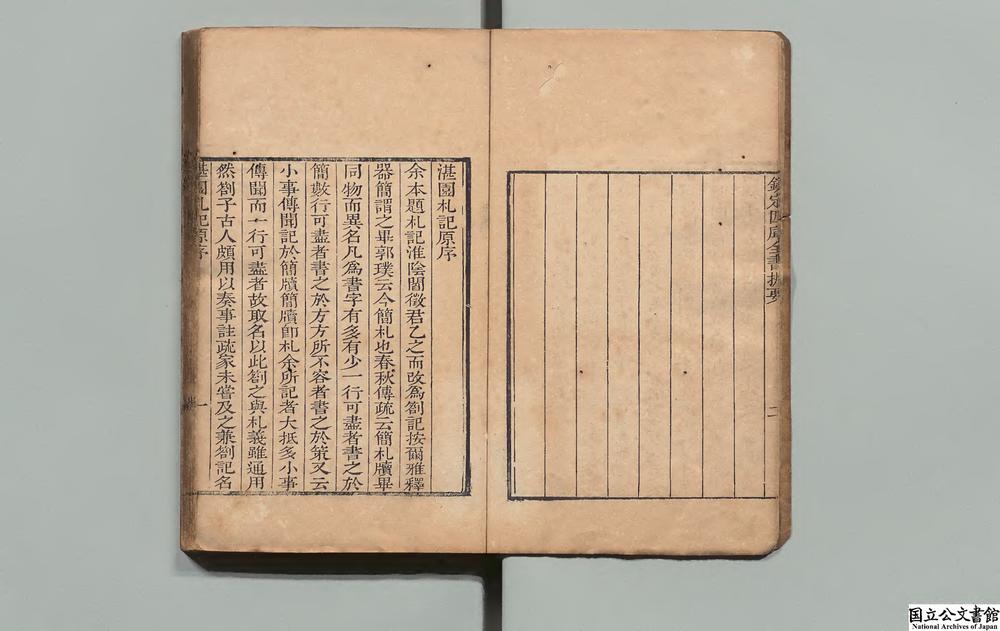 欽定四庫全書提要
二
湛園札記原序
余本題札記淮陰閻徵君乙之而改為劄記按爾雅釋
器簡謂之畢郭璞云今簡札也春秋傳疏云簡札牘畢
同物而異名凡為書字有多有少一行可盡者書之於
簡數行可盡者書之於方方所不容者書之於策又云
小事傳聞記於簡牘簡牘卽札余所記者大抵多小事
傳聞而一行可盡者故取名以此劄之與札義雖通用
然劄子古人頗用以奏事註疏家未嘗及之兼劄記名
湛園札記原序
一
国立公文書館
National Archives of Japan